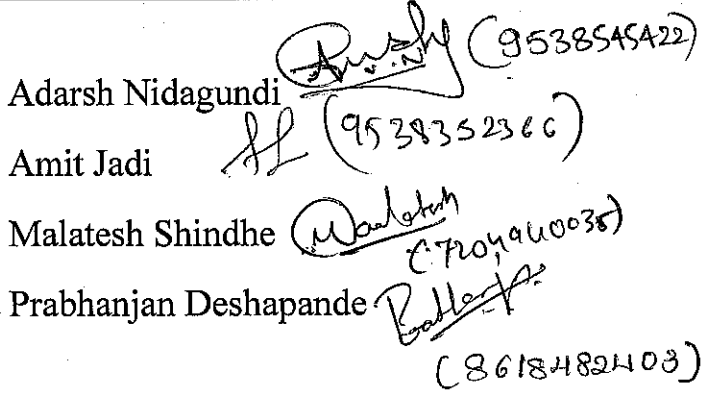 Adarsh Nidagundi (9538545422)
Amit Jadi (9538352366)
Malatesh Shindhe Maalatesh
(7204940035)
Prabhanjan Deshapande
(8618482403)